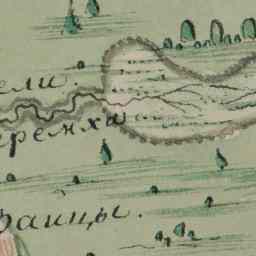 ели.
еремха
заицы.